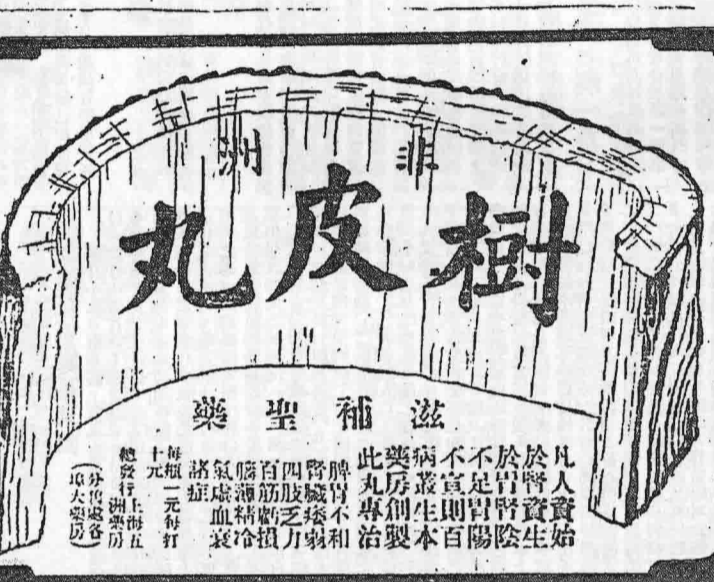 非洲
樹皮丸
滋補聖藥
凡人資始
於腎資生
於胃腎陰
不足胃陽
不宣則百
病叢生本
藥房創製
此丸專治
脾胃不和
腎臟痿弱
四肢乏力
百筋虧損
精冷
氣虛血衰
諸症
每瓶一元每打
十元
總發行上海五
洲藥房
(分售處各
埠大藥房)